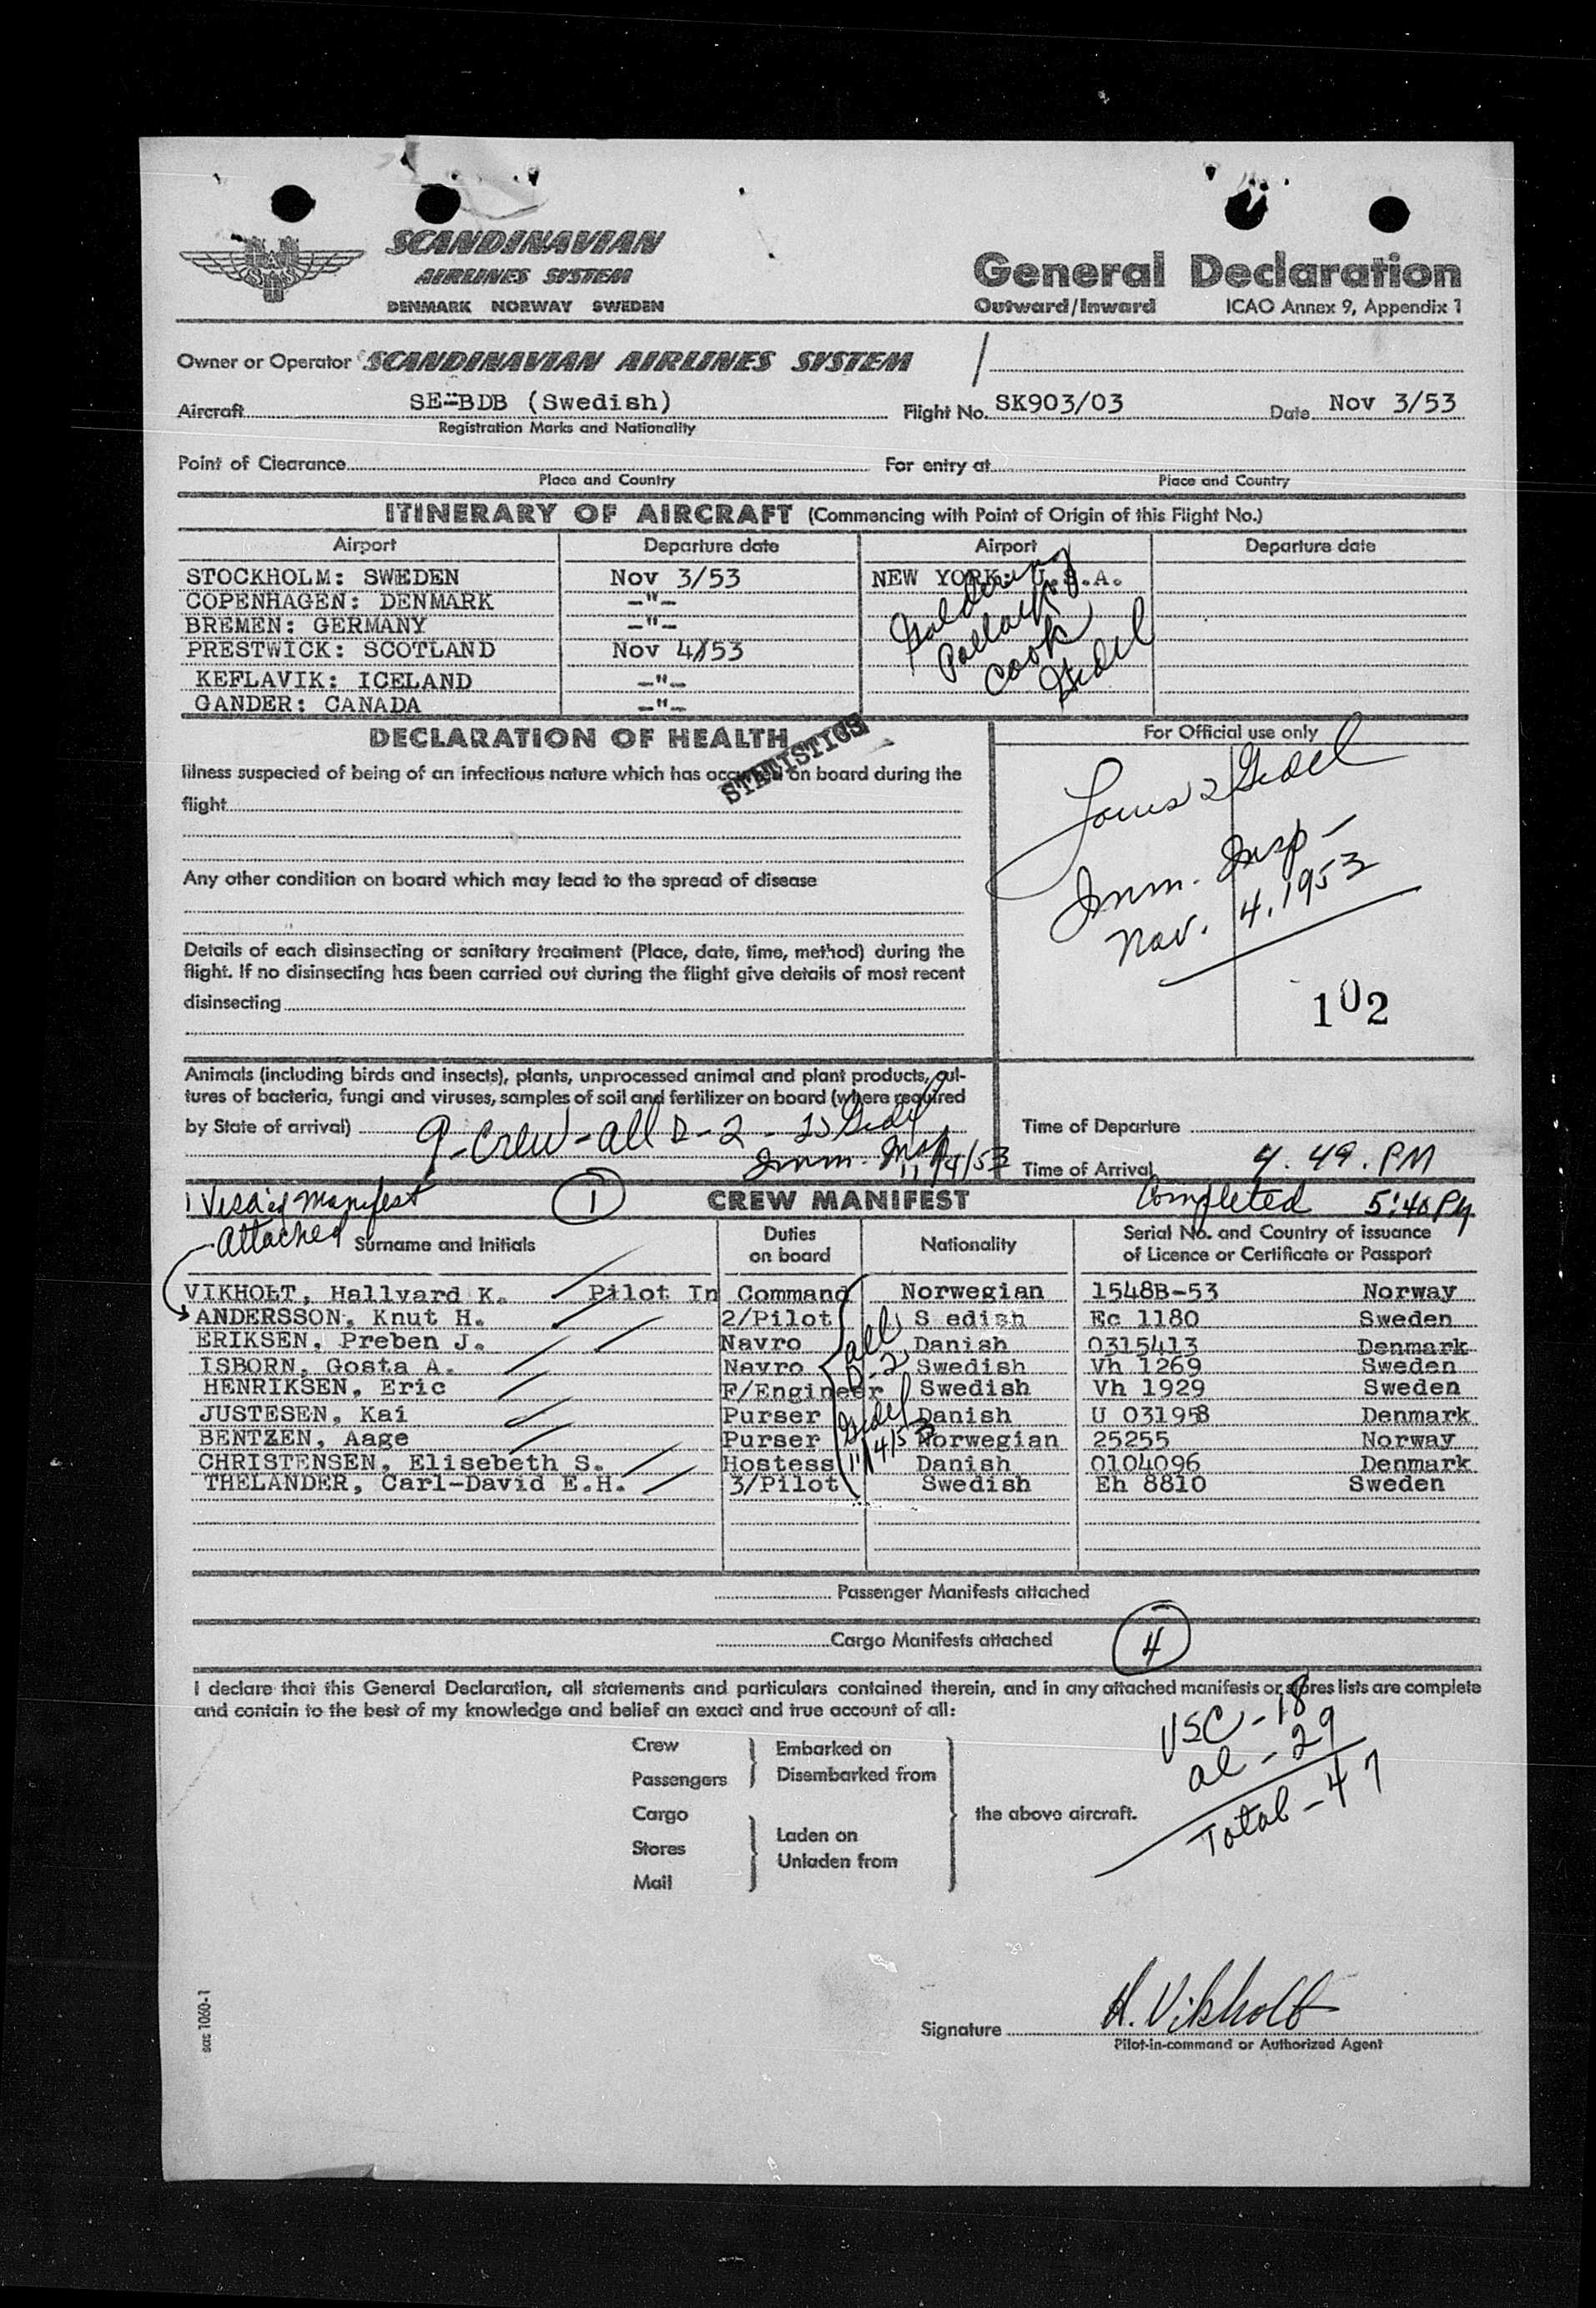 SCANDINAVIAN
AIRLINES SYSTEM
DENMARK NORWAY SWEDEN
General Declaration
Outward/Inward ICAO Annex 9, Appendix 1
Owner or Operator SCANDINAVIAN AIRLINES SYSTEM
Aircraft SE-BDB (Swedish) Flight No. SK903/03 Date Nov 3/53
Registration Marks and Nationality
Point of Clearance For entry at
Place and Country Place and Country
ITINERARY OF AIRCRAFT (Commencing with Point of Origin of this Flight No.)
Airport Departure date Airport Departure date
STOCKHOLM: SWEDEN Nov 3/53 NEW YORK: U.S.A.
COPENHAGEN: DENMARK -"-
BREMEN: GERMANY -"-
PRESTWICK: SCOTLAND Nov 4/53
KEFLAVIK: ICELAND -"-
GANDER: CANADA -"-
Pollack
Cook
Gedel
DECLARATION OF HEALTH
STATISTICS
For Official use only
Illness suspected of being of an infectious nature which has occurred on board during the
flight
Any other condition on board which may lead to the spread of disease
Details of each disinsecting or sanitary treatment (Place, date, time, method) during the
flight. If no disinsecting has been carried out during the flight give details of most recent
disinsecting
Louis Gedel
Imm. Insp -
Nov. 4, 1953
102
Animals (including birds and insects), plants, unprocessed animal and plant products, cul-
tures of bacteria, fungi and viruses, samples of soil and fertilizer on board (where required
by State of arrival) 9-Crew-all D-2 - Gedel
Imm. Insp 11/4/53
Time of Departure
Time of Arrival 4.49.PM
1 Visa'd manifest 1 CREW MANIFEST Completed 5:40 PM
Attached
Surname and Initials Duties on board Nationality Serial No. and Country of issuance of Licence or Certificate or Passport
VIKHOLT, Hallvard K. Pilot In Command Norwegian 1548B-53 Norway
ANDERSSON, Knut H. 2/Pilot S edish Ec 1180 Sweden
ERIKSEN, Preben J. Navro Danish 0315413 Denmark
ISBORN, Gosta A. Navro Swedish Vh 1269 Sweden
HENRIKSEN, Eric F/Engineer Swedish Vh 1929 Sweden
JUSTESEN, Kai Purser Danish U 031958 Denmark
BENTZEN, Aage Purser Norwegian 25255 Norway
CHRISTENSEN, Elisebeth S. Hostess Danish 0104096 Denmark
THELANDER, Carl-David E.H. 3/Pilot Swedish Eh 8810 Sweden
all
D-2
Gedel
11/4/53
Passenger Manifests attached
Cargo Manifests attached 4
I declare that this General Declaration, all statements and particulars contained therein, and in any attached manifests or stores lists are complete
and contain to the best of my knowledge and belief an exact and true account of all:
USC-18
al-29
Total-47
Crew Embarked on
Passengers Disembarked from
Cargo the above aircraft.
Stores Laden on
Unladen from
Mail
Signature H. Vikholt
Pilot-in-command or Authorized Agent
sas 1060-1